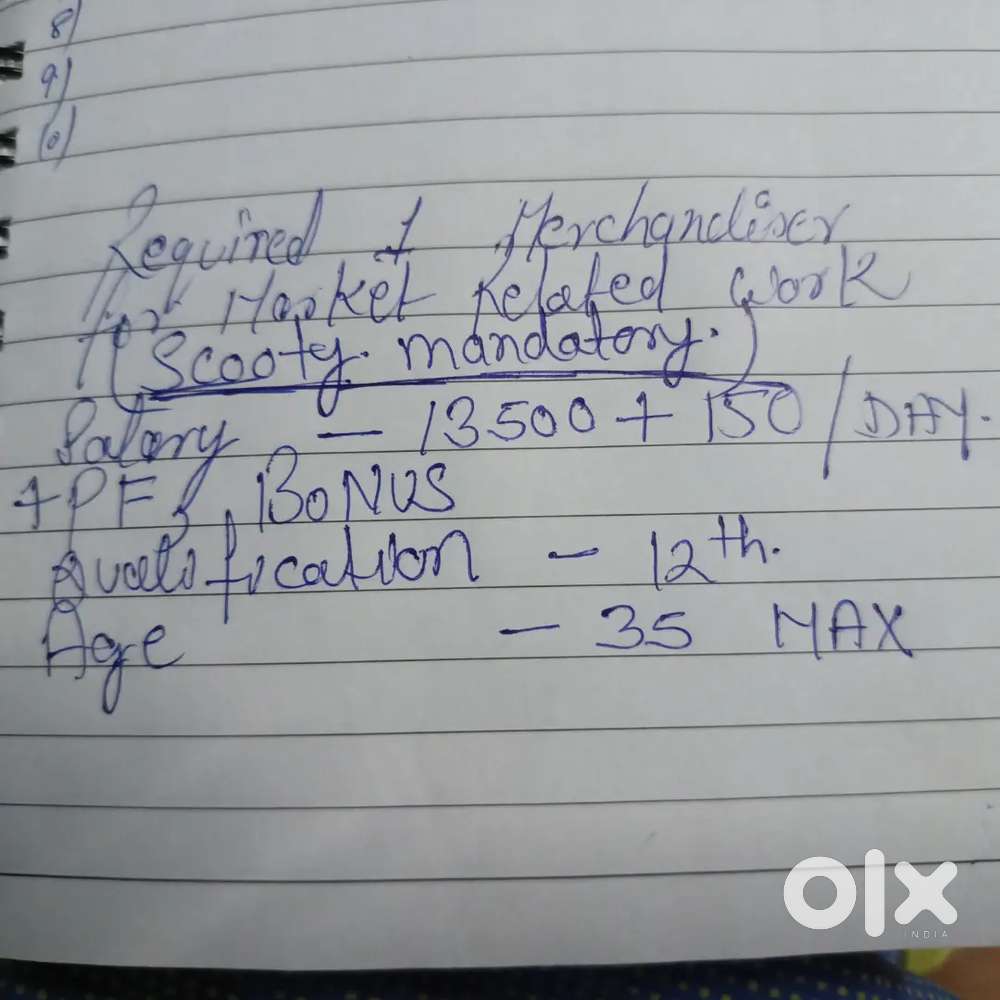 8)
9)
10)
Required 1 Merchandiser
for Market Related work
(Scooty. mandatory.)
Salary - 13500 + 150/DAY.
+PF, BoNUS
Qualification - 12th.
Age - 35 MAX
olx
INDIA